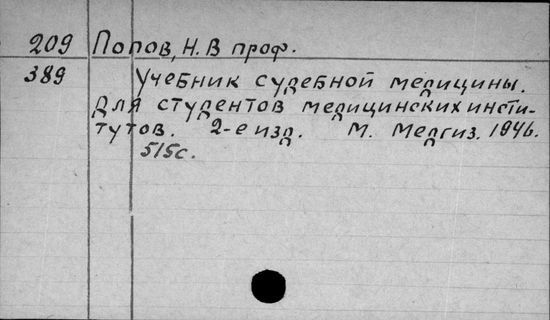 209 Попов, Н. В проф.
389 Учебник судебной медицины.
Для студентов медицинских инсти-
тутов. 2-е изд. М. Медгиз. 1946.
515с.